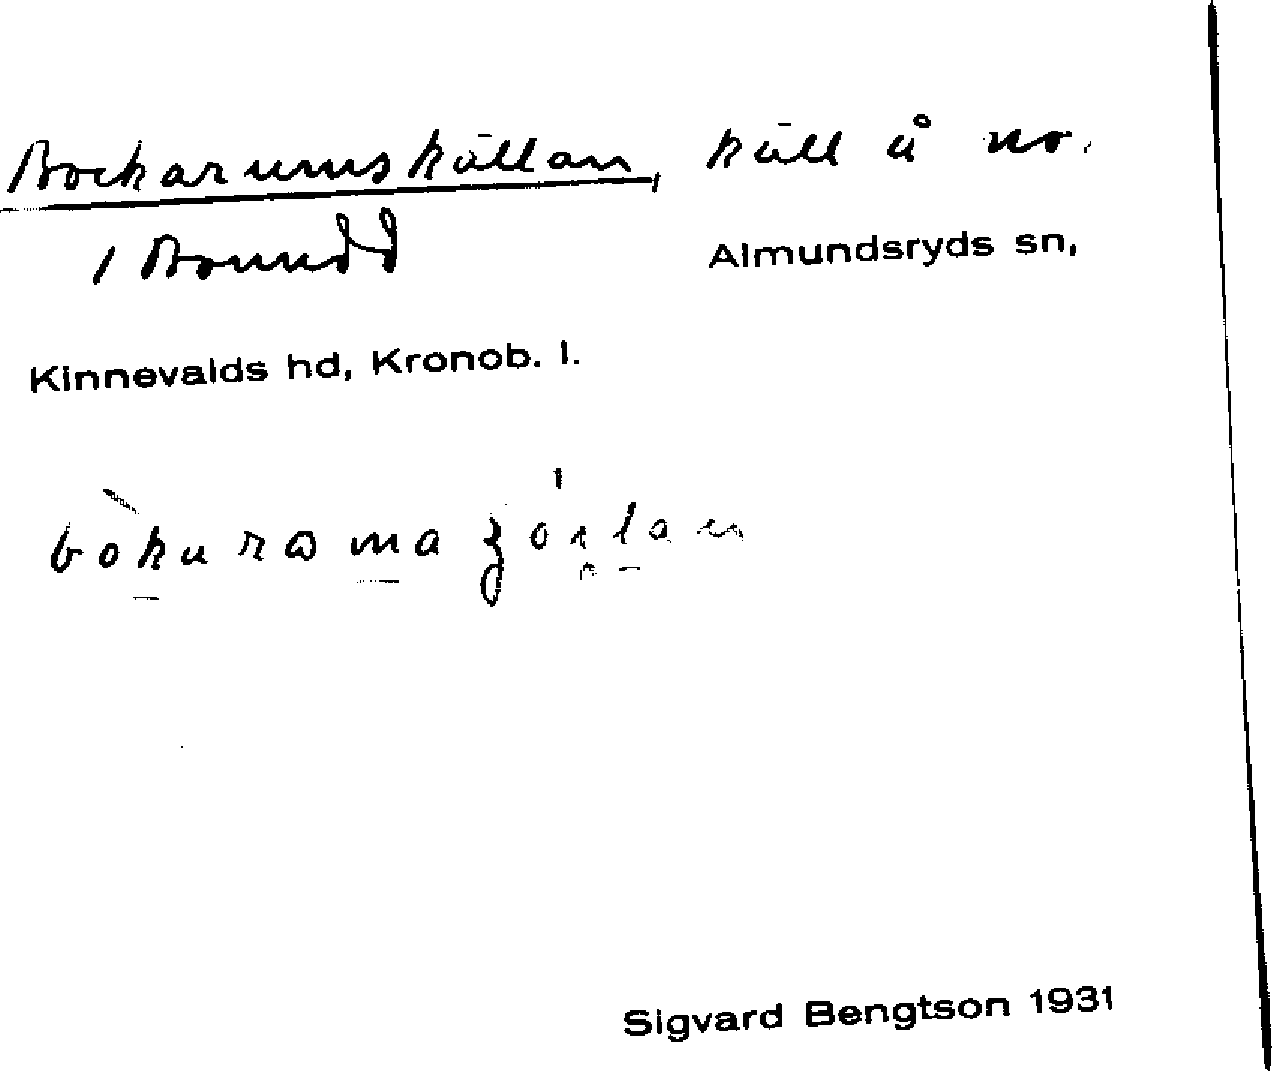 Bockarumskällan, käll å no.
1 Bonnadd Almundsryds sn,
Kinnevalds hd, Kronob. l.
Sigvard Bengtson 1931